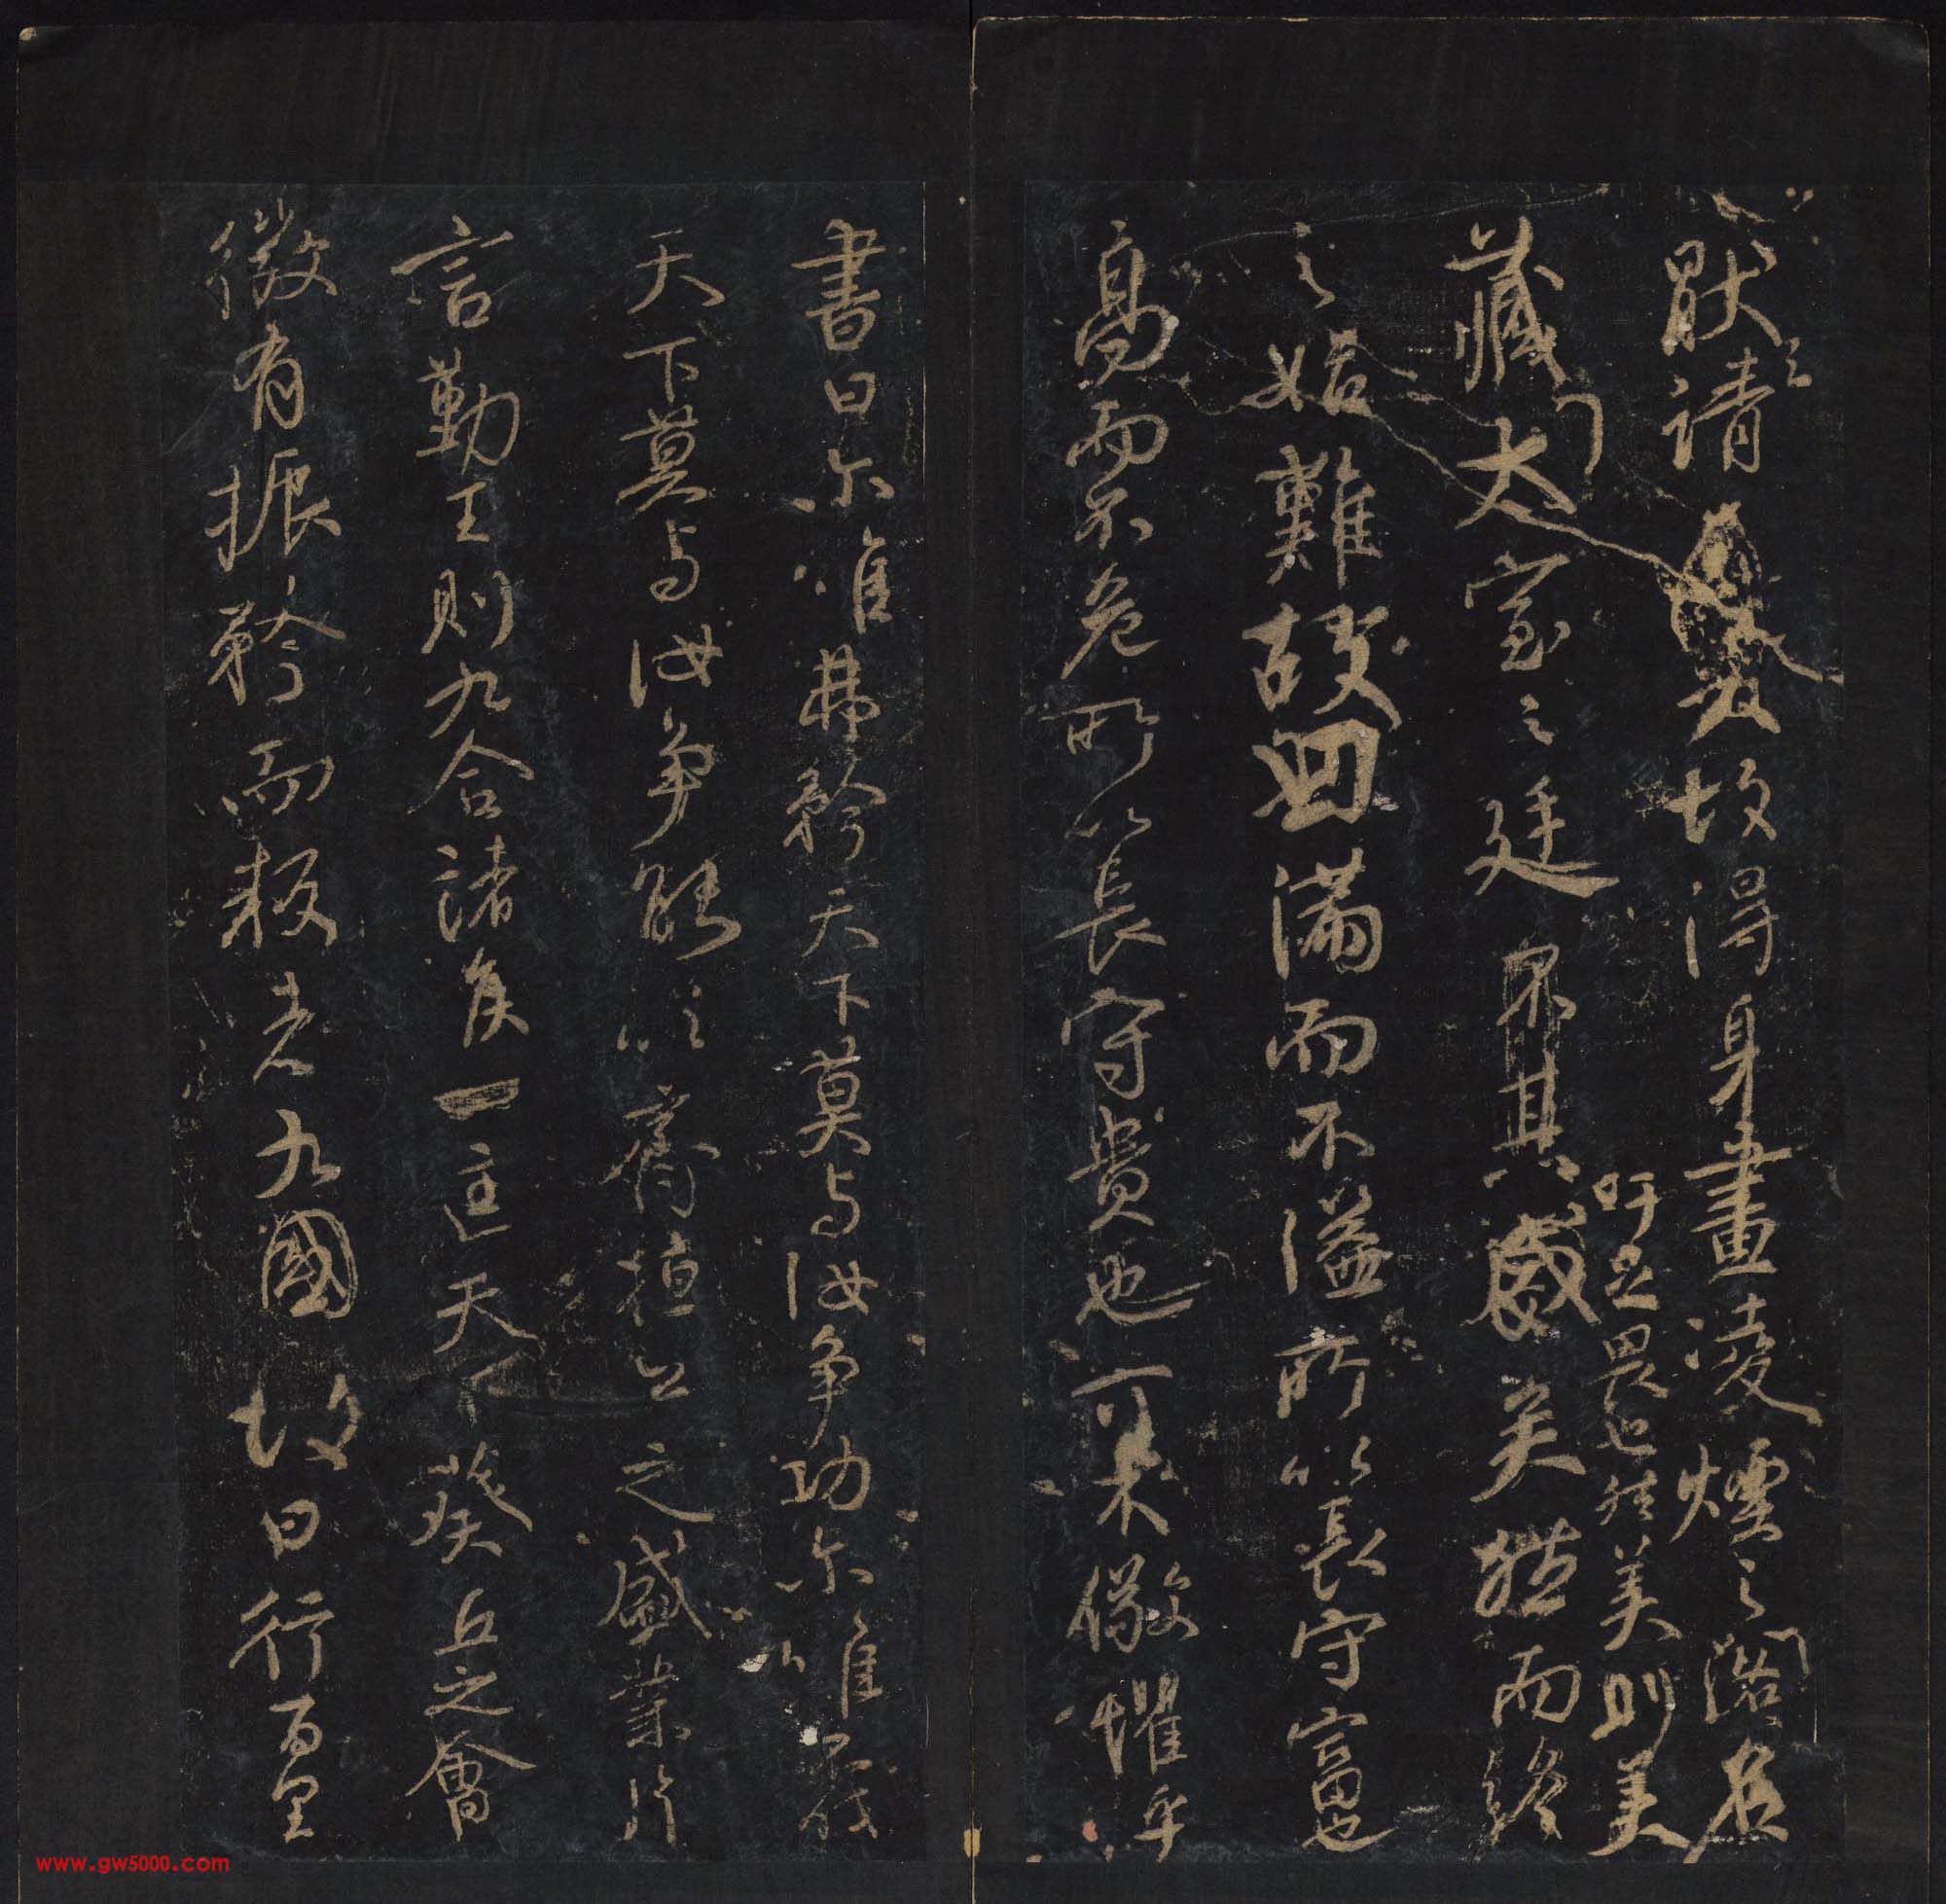 猒之請故得身畫凌煙之閣名
藏太室之廷吁足畏也然美則美矣然而終
之始難故曰滿而不溢所以長守富也
高而不危所以長守貴也可不儆懼乎
書曰尔唯弗矜天下莫与汝争功尔唯不伐
天下莫与汝争能以齊桓公之盛業片
言勤王則九合諸侯一匡天下葵丘之會
微有振矜而叛者九國故曰行百里
www.gw5000.com